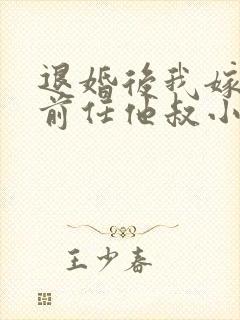 退婚後我嫁
前任他叔小
王少春